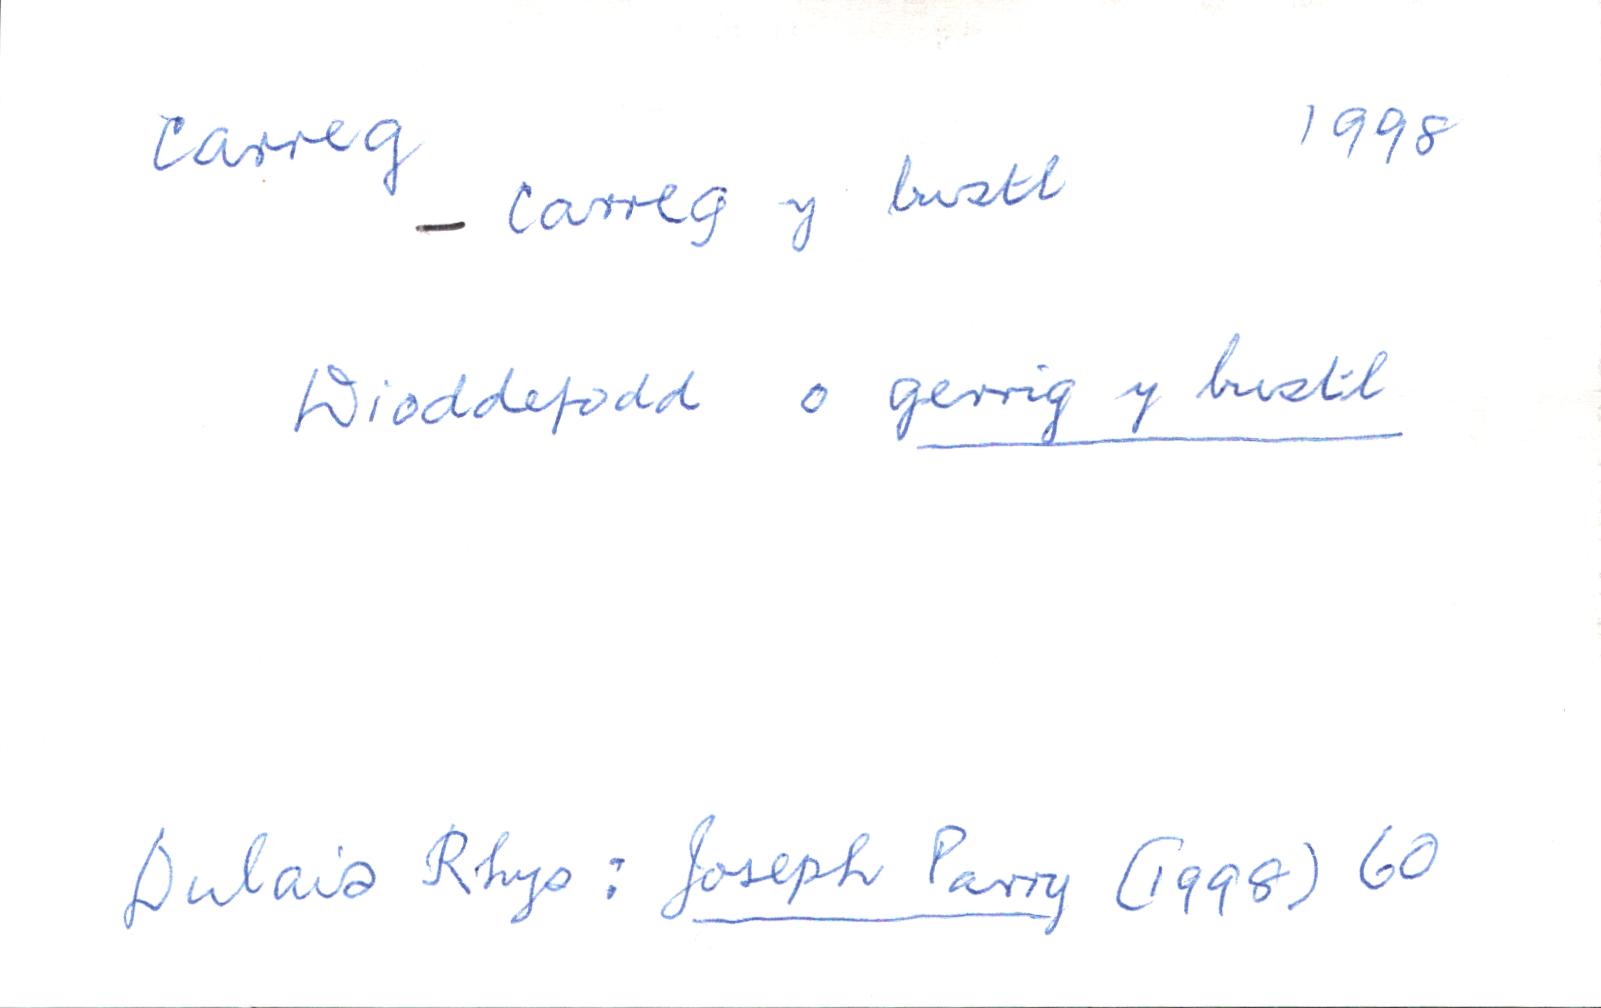 carreg 1998
- carreg y bustl
Dioddefodd o gerrig y bustl
Dulais Rhys: Joseph Parry (1998) 60